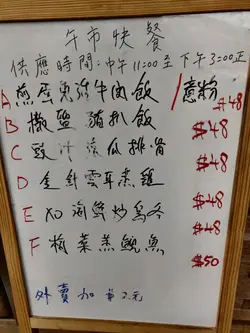 午市快餐
供應時間:中午11:00至下午3:00正
A 煎蛋免治牛肉飯/意粉 $48
B 椒鹽豬扒飯 $48
C 豉汁涼瓜排骨 $48
D 金針雲耳蒸雞 $48
E XO海鮮炒烏冬 $48
F 梅菜蒸鯇魚 $50
外賣加$2元